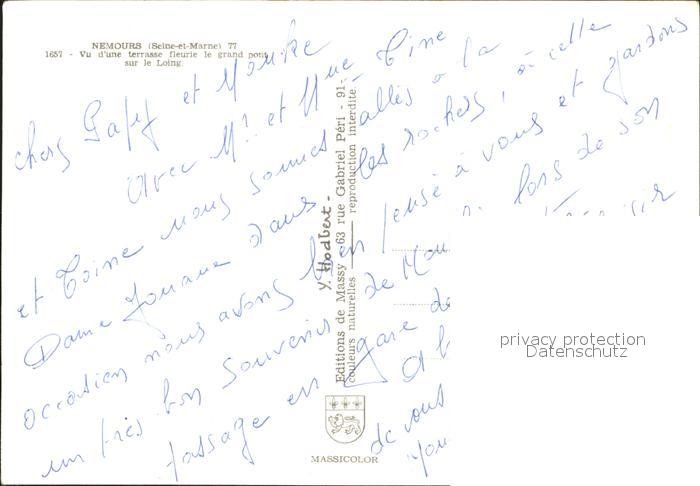 NEMOURS (Seine-et-Marne) 77
1657 - Vu d'une terrasse fleurie le grand pont
sur le Loing.
chers Gaby et
avec Mr et Mme Tine
et Toine nous sommes allés à la
Dame Jouane dans les rochers, à cette
occasion nous avons bien pensé à vous et gardons
un très bon souvenir de lors de son
passage en gare de
A b
de vous
Y. Hodbert -
Editions de Massy - 63 rue Gabriel Péri - 91-
couleurs naturelles reproduction interdite.
MASSICOLOR
privacy protection
Datenschutz